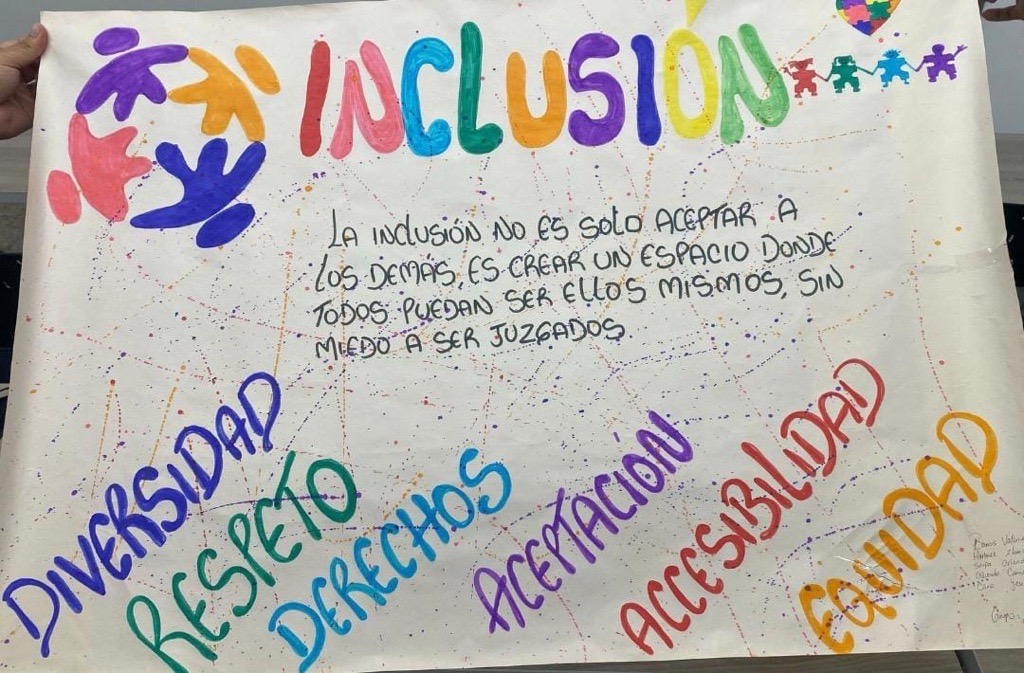 INCLUSIÓN
LA INCLUSIÓN NO ES SOLO ACEPTAR A
LOS DEMÁS, ES CREAR UN ESPACIO DONDE
TODOS PUEDAN SER ELLOS MISMOS, SIN
MIEDO A SER JUZGADOS.
DIVERSIDAD
RESPETO
DERECHOS
ACEPTACIÓN
ACCESIBILIDAD
EQUIDAD